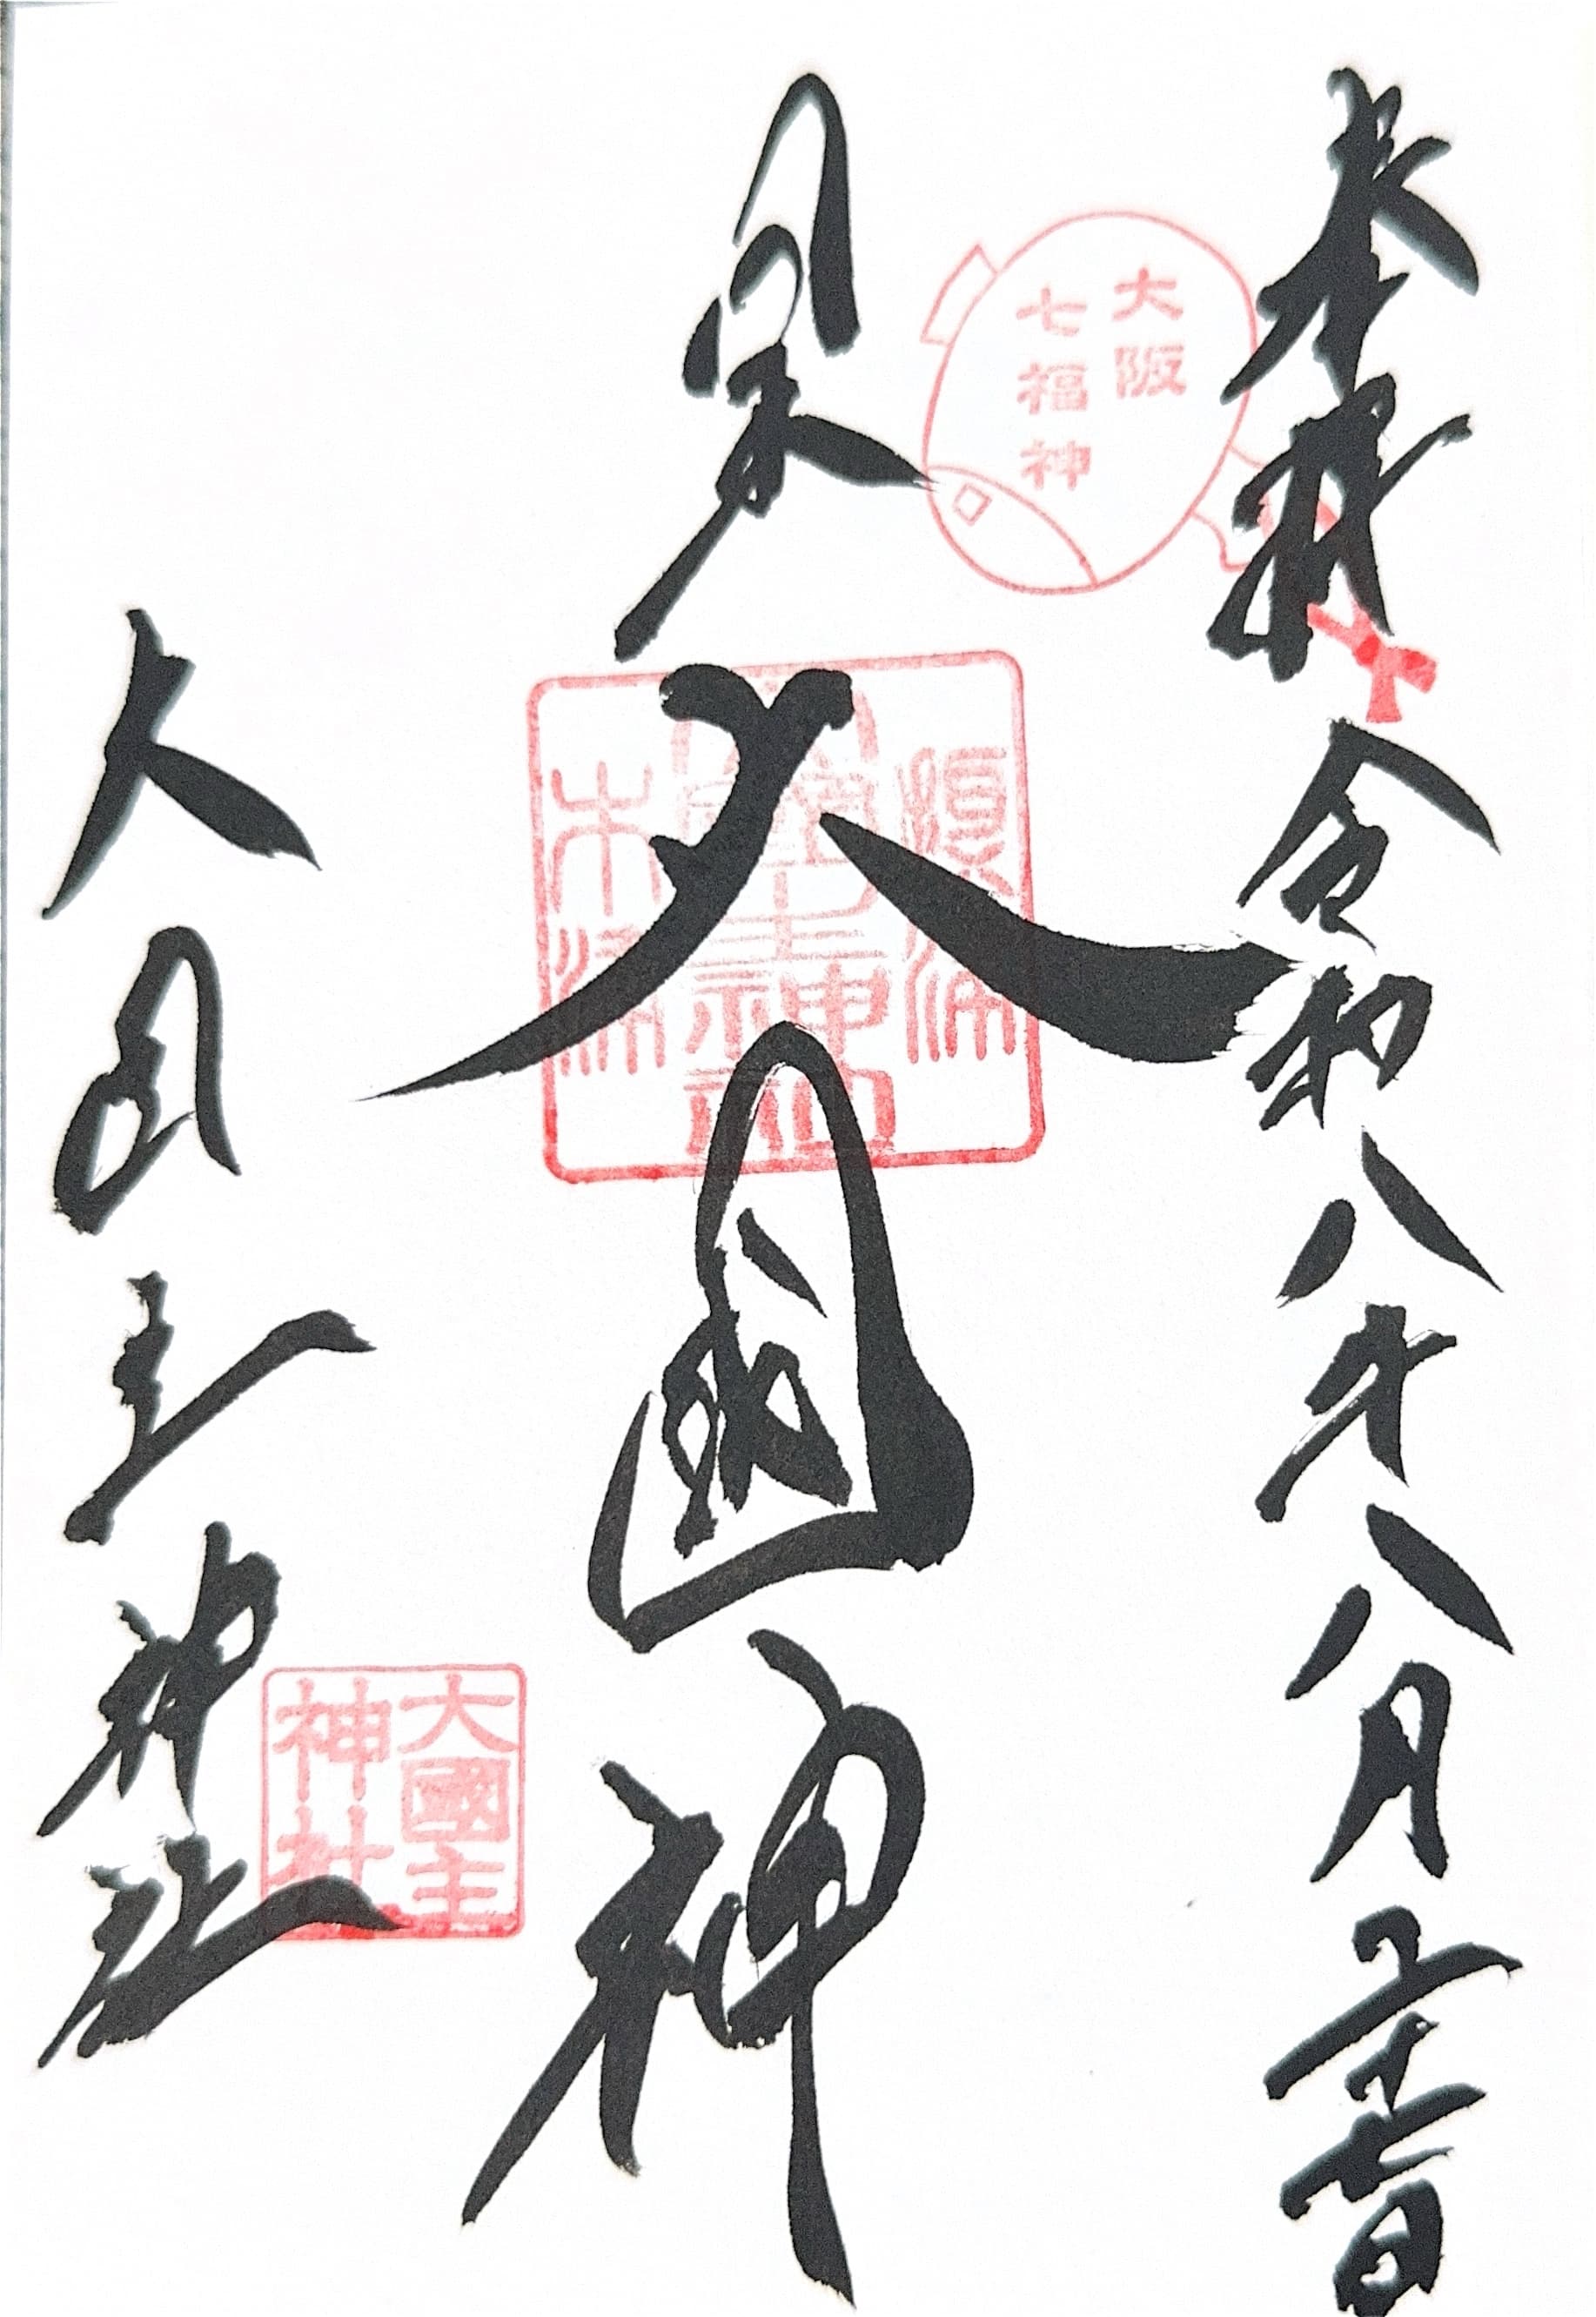 奉拝 令和八年八月
大阪
七福神
大國神
木津
大国主神社
大國主
神社